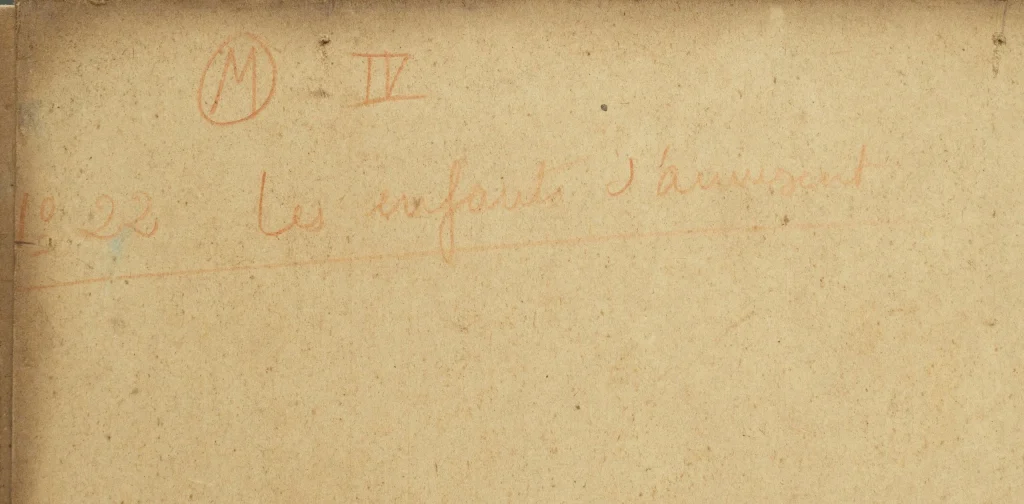 M IV
1º 22 Les enfants s'amusent